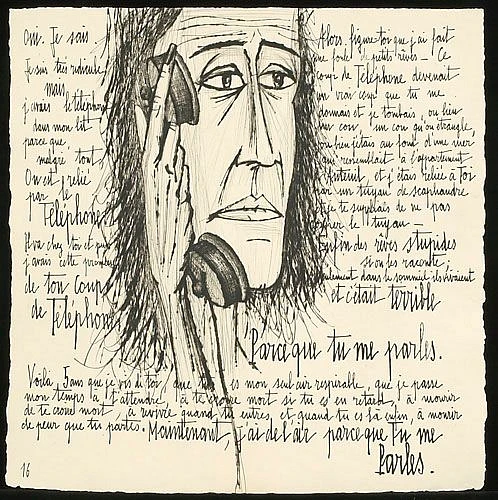 Oui. Je sais
Je suis très ridicule
mais
j'avais le téléphone
dans mon lit
parce que,
malgré tout,
On est relié
par le
Téléphone.
Il va chez toi et puis
j'avais cette promesse
de ton coup
de Téléphone
Alors, figure toi que j'ai fait
une foule de petits rêves - Ce
coup de Téléphone devenait
un vrai coup que tu me
donnais et je tombais, ou bien
un cou, un cou qu'on étrangle,
ou bien j'étais au fond d'une mer
qui ressemblait à l'appartement
d'Auteuil, et j'étais reliée à Toi
par un tuyau de scaphandre
et je te suppliais de ne pas
couper le tuyau -
Enfin des rêves stupides
si on les raconte ;
seulement dans le sommeil ils vivaient
et c'était terrible
Parce que tu me parles.
Voilà, 5 ans que je vis de toi, que tu es mon seul air respirable, que je passe
mon temps à t'attendre, à te croire mort si tu es en retard, à mourir
de te croire mort, à revivre quand tu entres, et quand tu es là enfin, à mourir
de peur que tu partes. Maintenant, j'ai de l'air parce que Tu me
Parles.
16